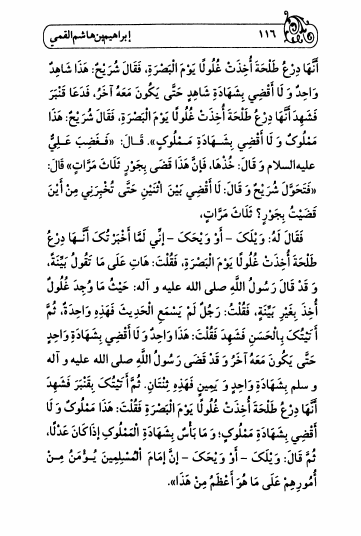 ١١٦ إبراهيم بن هاشم القمي
أَنَّهَا دِرْعُ طَلْحَةَ أُخِذَتْ غُلُولًا يَوْمَ الْبَصْرَةِ، فَقَالَ شُرَيْحٌ: هَذَا شَاهِدٌ
وَاحِدٌ وَ لَا أَقْضِي بِشَهَادَةِ شَاهِدٍ حَتَّى يَكُونَ مَعَهُ آخَرُ، فَدَعَا قَنْبَرَ
فَشَهِدَ أَنَّهَا دِرْعُ طَلْحَةَ أُخِذَتْ غُلُولًا يَوْمَ الْبَصْرَةِ، فَقَالَ شُرَيْحٌ: هَذَا
مَمْلُوكٌ وَ لَا أَقْضِي بِشَهَادَةِ مَمْلُوكٍ». قَالَ: «فَغَضِبَ عَلِيٌّ
عليه‌السلام وَ قَالَ: خُذْهَا، فَإِنَّ هَذَا قَضَى بِجَوْرٍ ثَلَاثَ مَرَّاتٍ» قَالَ:
«فَتَحَوَّلَ شُرَيْحٌ وَ قَالَ: لَا أَقْضِي بَيْنَ اثْنَيْنِ حَتَّى تُخْبِرَنِي مِنْ أَيْنَ
قَضَيْتُ بِجَوْرٍ؟ ثَلَاثَ مَرَّاتٍ،
فَقَالَ لَهُ: وَيْلَكَ – أَوْ وَيْحَكَ – إِنِّي لَمَّا أَخْبَرْتُكَ أَنَّهَا دِرْعُ
طَلْحَةَ أُخِذَتْ غُلُولًا يَوْمَ الْبَصْرَةِ، فَقُلْتَ: هَاتِ عَلَى مَا تَقُولُ بَيِّنَةً،
وَ قَدْ قَالَ رَسُولُ اللَّهِ صلی الله علیه و آله: حَيْثُ مَا وُجِدَ غُلُولٌ
أُخِذَ بِغَيْرِ بَيِّنَةٍ، فَقُلْتُ: رَجُلٌ لَمْ يَسْمَعِ الْحَدِيثَ فَهَذِهِ وَاحِدَةٌ، ثُمَّ
أَتَيْتُكَ بِالْحَسَنِ فَشَهِدَ فَقُلْتَ: هَذَا وَاحِدٌ وَ لَا أَقْضِي بِشَهَادَةِ وَاحِدٍ
حَتَّى يَكُونَ مَعَهُ آخَرُ وَ قَدْ قَضَى رَسُولُ اللَّهِ صلی الله علیه و آله
و سلم بِشَهَادَةِ وَاحِدٍ وَ يَمِينٍ فَهَذِهِ ثِنْتَانِ. ثُمَّ أَتَيْتُكَ بِقَنْبَرَ فَشَهِدَ
أَنَّهَا دِرْعُ طَلْحَةَ أُخِذَتْ غُلُولًا يَوْمَ الْبَصْرَةِ فَقُلْتَ: هَذَا مَمْلُوكٌ وَ لَا
أَقْضِي بِشَهَادَةِ مَمْلُوكٍ؛ وَ مَا بَأْسٌ بِشَهَادَةِ الْمَمْلُوكِ إِذَا كَانَ عَدْلًا،
ثُمَّ قَالَ: وَيْلَكَ – أَوْ وَيْحَكَ – إِنَّ إِمَامَ الْمُسْلِمِينَ يُؤْمَنُ مِنْ
أُمُورِهِمْ عَلَى مَا هُوَ أَعْظَمُ مِنْ هَذَا».